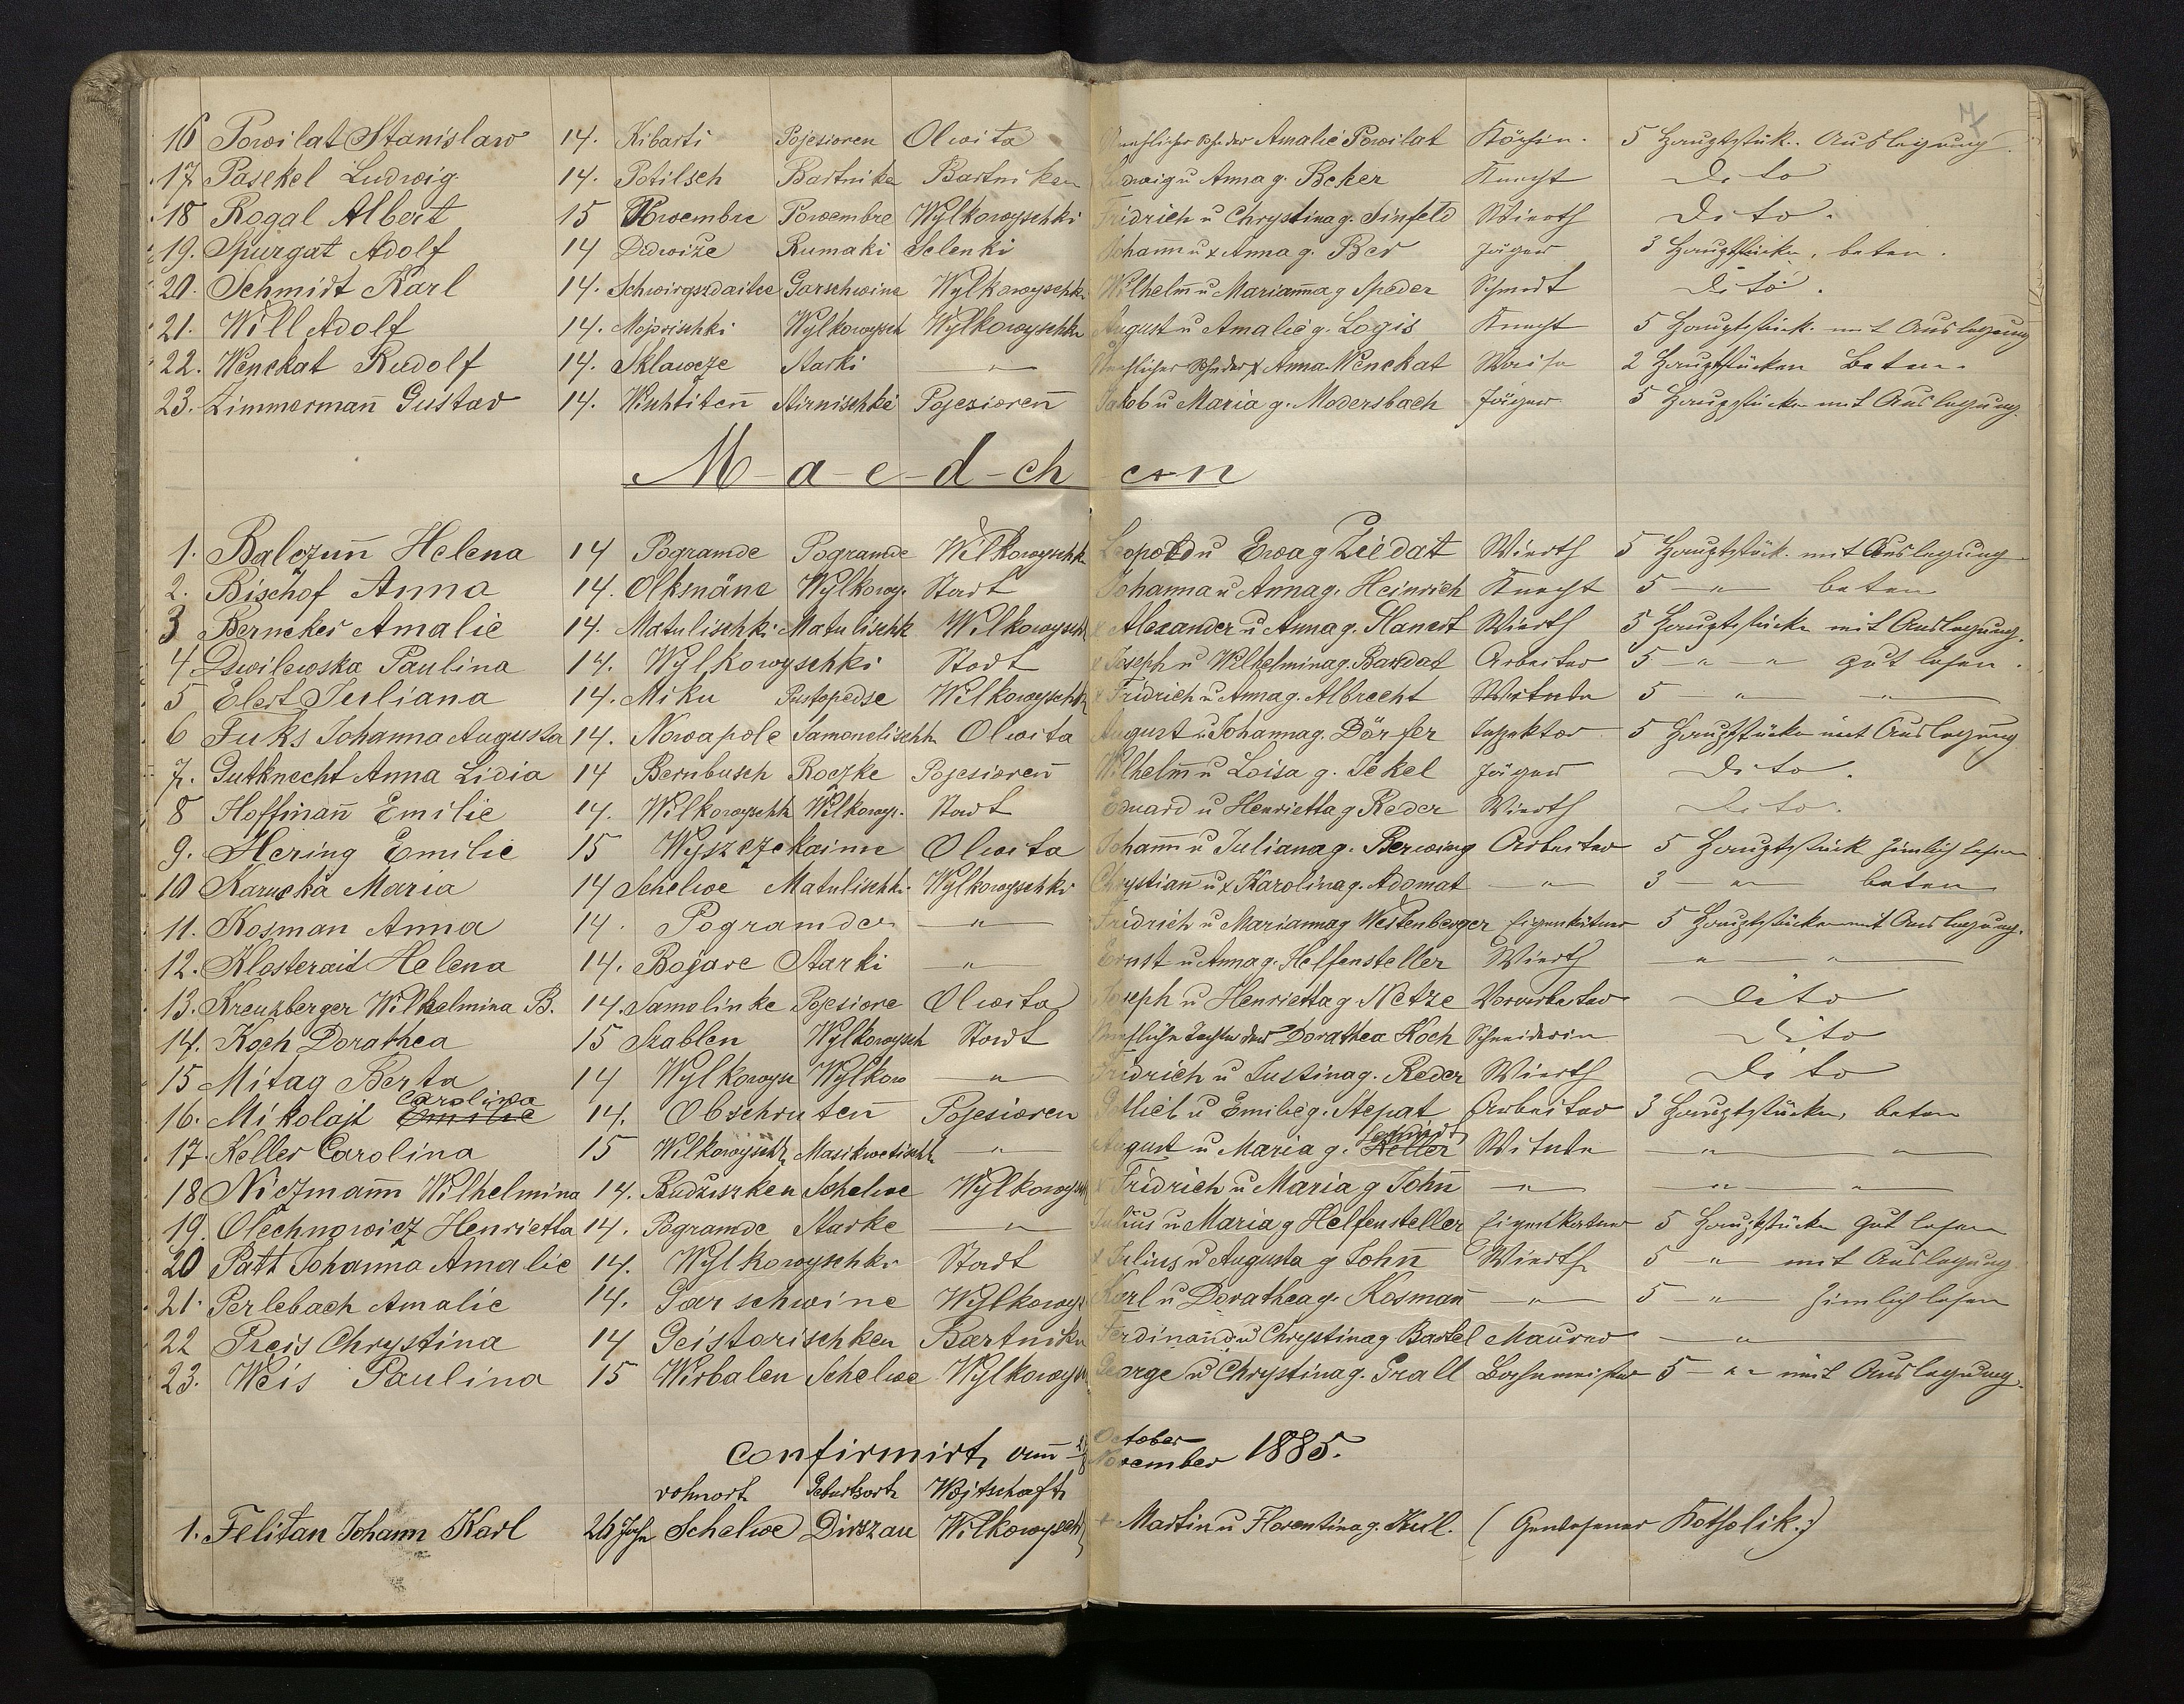 16 Powilat Stanislaw 14. Kibarti Pojesioren Olwita Unehlicher Sohn der Amalie Powilat Köchin. 5 Hauptstük. Auslegung.
17 Pasekel Ludwig. 14. Potilsch Bartnike Bartniken Ludwig u Anna g. Beker Knecht Dito
18 Rogal Albert 15 Powembre Powembre Wylkowyschki Fridrich u Chrystina g. Sinfeld Wierth Dito.
19. Spurgat Adolf 14 Didwiże Rumaki Selenki Johann u x Anna g. Ber Jäger 3 Hauptstücke, beten.
20. Schmidt Karl 14. Schwirgszdaitse Garschwine Wylkowyschki Wilhelm u Marianna g Speder Schmidt Dito.
21. Will Adolf 14. Mojorischki Wylkowysch Wylkowyschki August u Amalie g. Logis Knecht 5 Hauptstück. mit Auslegung
22. Wenckat Rudolf 14. Sklaweze Starki " Unehlicher Sohn der x Anna Wenckat Waise 2 Hauptstücken Beten.
23. Zimmermañ Gustav 14. Wischtiteñ Stirnischke Pojesioreñ Jakob u Maria g. Modersbach Jäger 5 Hauptstücke mit Auslegung.
M-a-e-d-ch en
1. Balczuñ Helena 14 Pogramde Pogramde Wilkowyschki Leopold u Ewa g Zeidat Wierth 5 Hauptstück. mit Auslegung
2. Bischof Anna 14. Olksnäne Wylkowy. Stadt Johanna u Anna g. Heinrich Knecht 5 " beten
3 Bernekes Amalie 14. Matulischki Matulischk Wilkowysch x Alexander u Anna g. Hanert Wierth 5 Hauptstücke mit Auslegung.
4 Dwilewska Paulina 14. Wylkowyschki Stadt x Joseph u Wilhelmina g. Bardat Arbeiter 5 " " gut lesen.
5 Elert Juliana 14. Miku Pustopedse Wilkowyschki x Fridrich u Anna g. Albrecht Witwe 5 " "
6 Fuks Johanna Augusta 14. Nowapole Samonelischk Olwita August u Johanna g. Dörfer Inspektor 5 Hauptstücke mit Auslegung
7. Gutknecht Anna Lidia 14 Bernbusch Roczke Pojesioreñ Wilhelm u Loisa g. Jekel Jäger Dito.
8 Hoffmañ Emilie 14. Wilkowyschk Wilkowy. Stadt Eduard u Henrietta g Reder Wierth Dito.
9. Hering Emilie 15 Wyszczekaime Olwita Johann u Juliana g. Berwing Arbeiter 5 Hauptstück zimlich lesen
10 Karucka Maria 14 Schelwe Matulischki Wylkowyschki Chrystiañ u x Karolina g. Adomat " 3 " beten
11. Kosman Anna 14. Pogramden " Fridrich u Marianna g Westenberger Eigenkätner 5 Hauptstücke mit Auslegung.
12. Klosterait Helena 14. Bojare Starki " Ernst u Anna g. Helfensteller Wierth " "
13. Kreuzberger Wilhelmina B. 14. Samolinke Pojesiore Olwita Joseph u Henrietta g Netze Vorarbeiter Dito
14. Koch Dorathea 15 Szablen Wylkowysch Stadt Unehliche Tochter der Dorathea Koch Schneiderin Dito
15 Mitag Berta 14 Wylkowysc Wylkow " Fridrich u Justina g. Reder Wierth Dito
Carolina
16. Mikolajt Emilie 14. Obschruteñ Pojesioren Gotlieb u Emilie g. Stepat Arbeiter 3 Hauptstücke, beten
Schmidt
17. Keller Carolina 15 Wilkowyschk Masikwetischk " August u Maria g. Keller Witwe " "
18 Niczmañ Wilhelmina 14. Budwiszken Schelwe Wylkowysch x Fridrich u Maria g Johñ " " "
19. Olechnowicz Henrietta 14. Pogramde Starke " Julius u Maria g Helfensteller Eigenkätner 5 Hauptstücke gut lesen
20 Patt Johanna Amalie 14. Wylkowyschki Stadt x Julius u Augusta g Johñ Wierth 5 " mit Auslegung
21. Perlebach Amalie 14. Garschwine Wylkowys Karl u Dorathea g. Kosmañ " 5 " zimlich lesen
22 Preis Chrystina 14 Geistarischken Bartnike Ferdinand u Chrystina g Bartel Maurer "
23. Weis Paulina 15 Wirbalen Schelwe Wylkowys George u Chrystina g. Grall Bahnmeister 5 " mit Auslegung.
October
Confirmirt am November 1885.
wohnort Geburtsort Wojtschaft
1. Felitan Johann Karl 26 Jahr Schelwe Dirszau Wilkowysch + Martin u Florentina g. Keil. (Gewesener Katholik.)